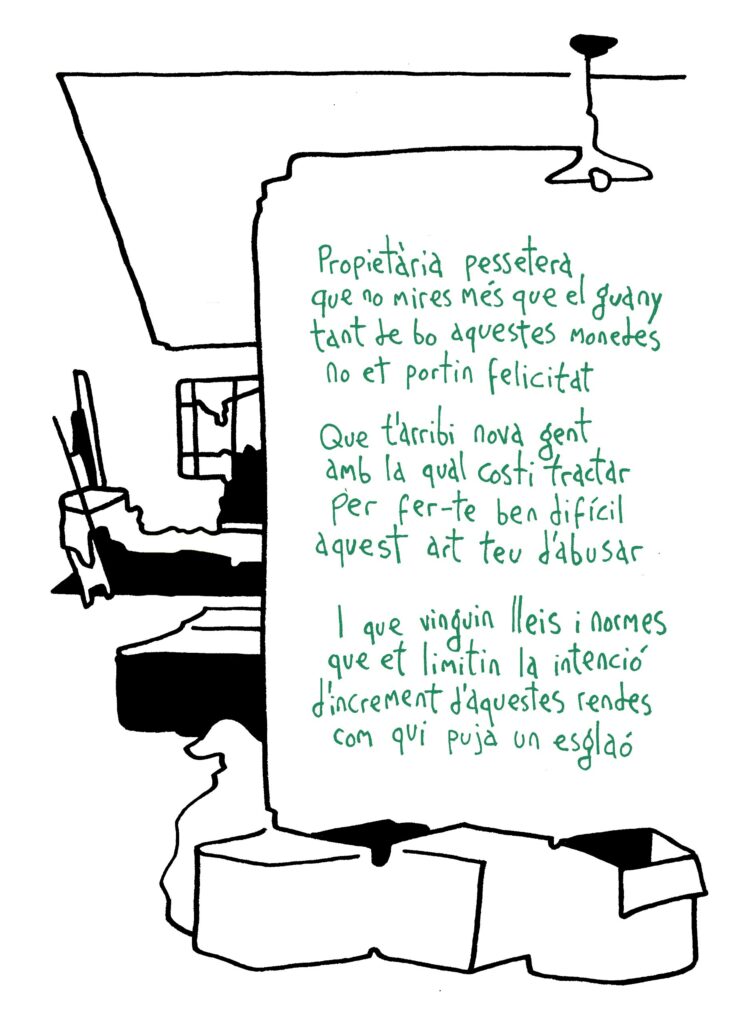 Propietària pessetera
que no mires més que el guany
tant de bo aquestes monedes
no et portin felicitat
Que t'arribi nova gent
amb la qual costi tractar
per fer-te ben difícil
aquest art teu d'abusar
I que vinguin lleis i normes
que et limitin la intenció
d'increment d'aquestes rendes
com qui puja un esglaó